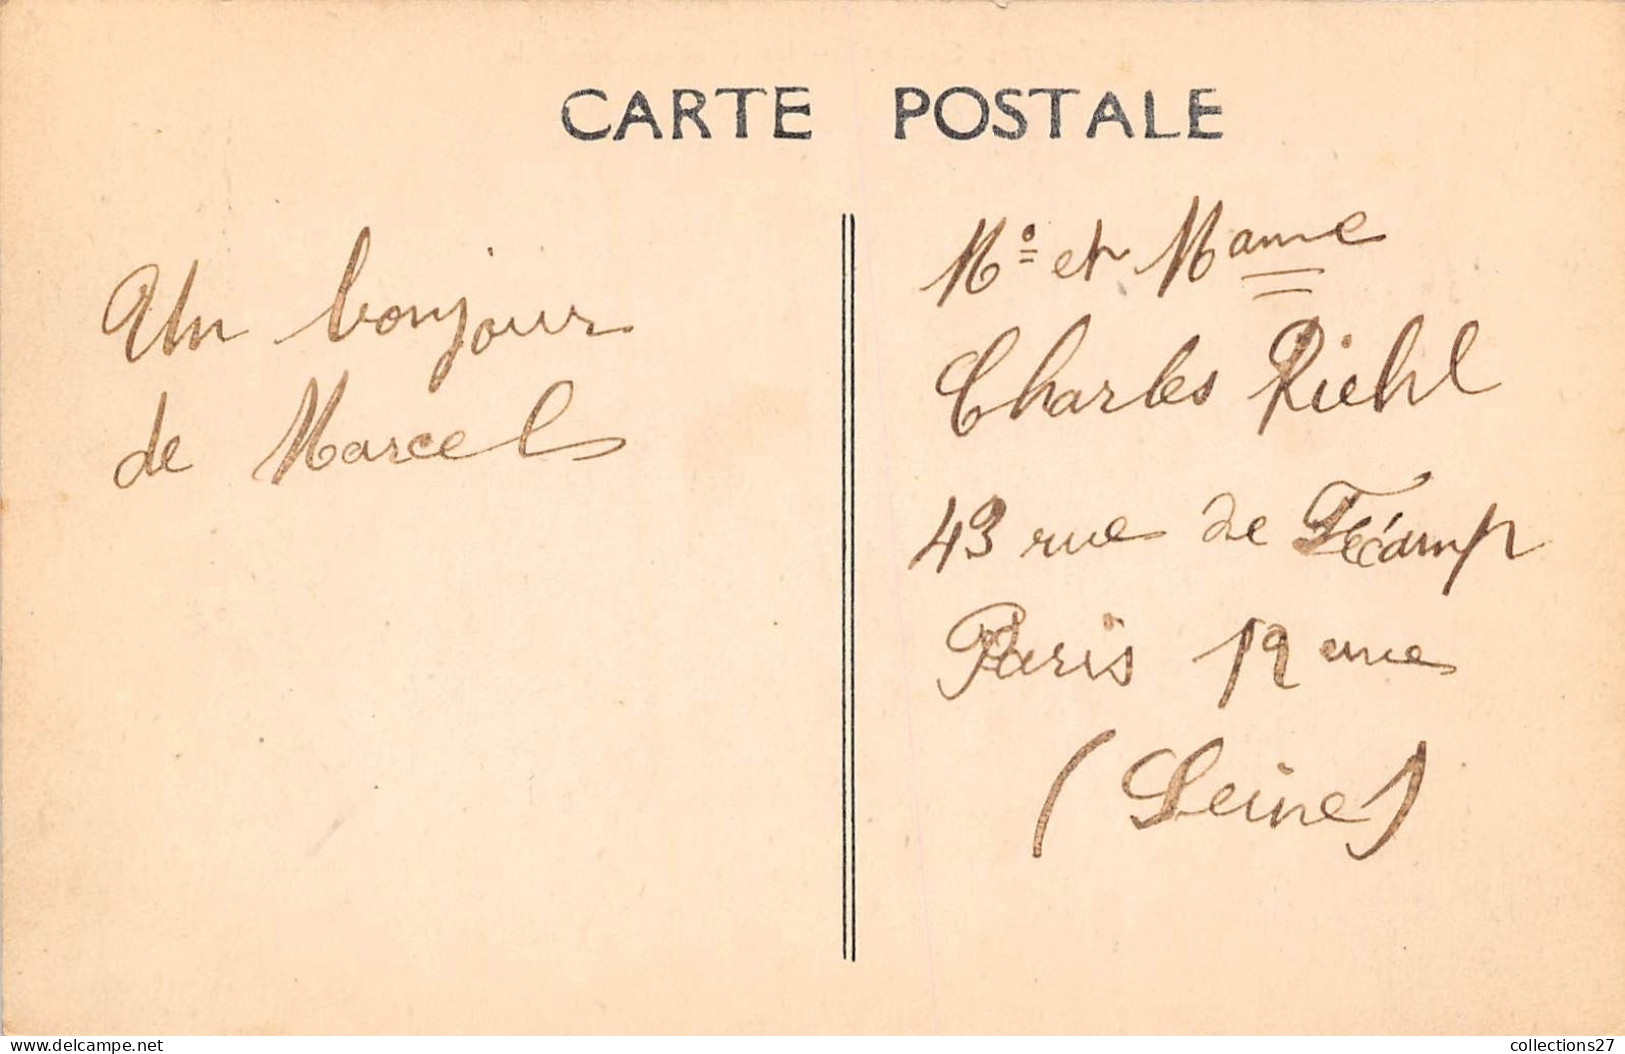 CARTE POSTALE
Un bonjour
de Marcel
Mr et Mame
Charles Riehl
43 rue de Fécamp
Paris 12 eme
(Seine)
collections27